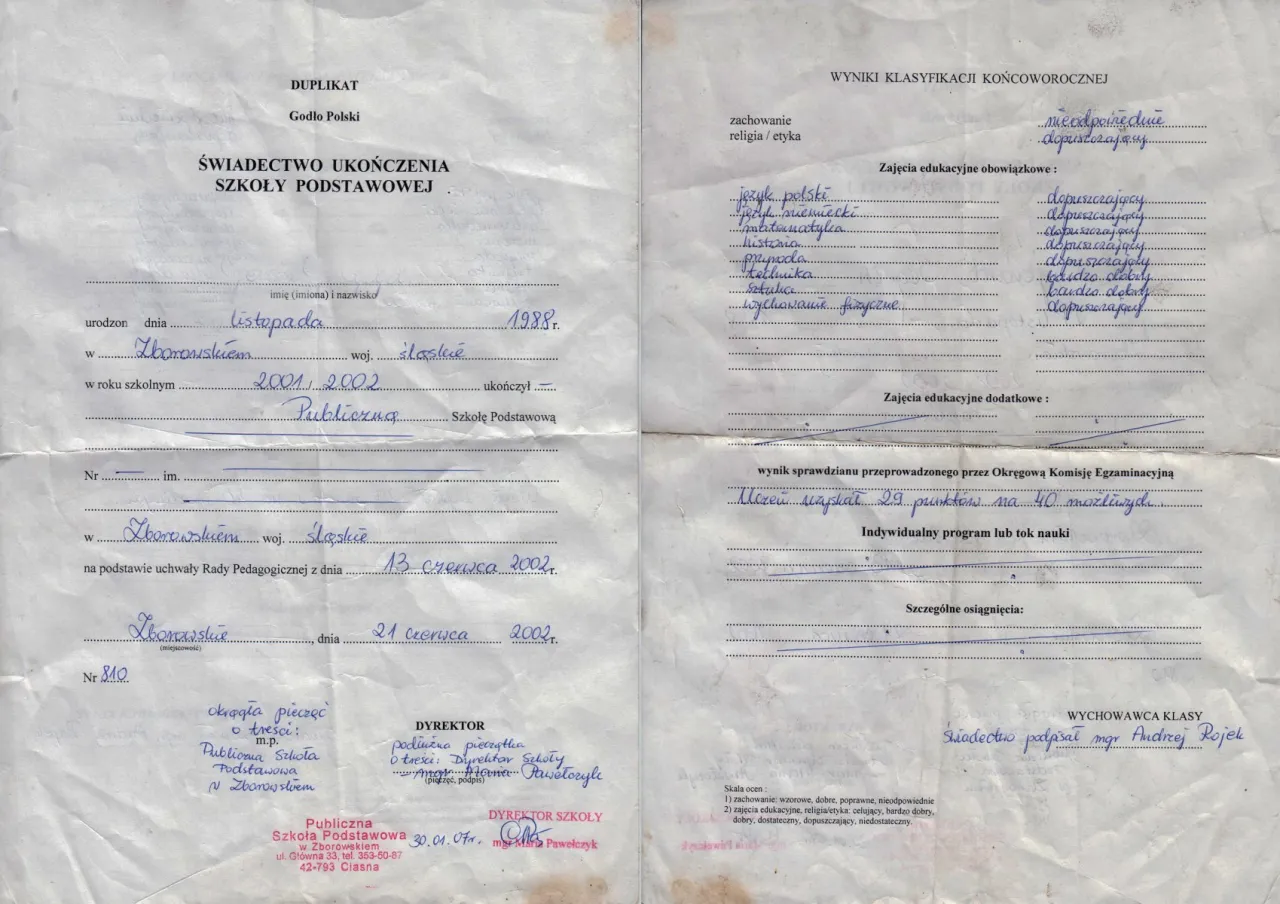 DUPLIKAT
Godło Polski
ŚWIADECTWO UKOŃCZENIA
SZKOŁY PODSTAWOWEJ
imię (imiona) i nazwisko
urodzon dnia listopada 1988 r.
w Zborowskiem woj. śląskie
w roku szkolnym 2001 / 2002 ukończył —
Publiczną Szkołę Podstawową
Nr — im.
w Zborowskiem woj. śląskie
na podstawie uchwały Rady Pedagogicznej z dnia 13 czerwca 2002 r.
Zborowskie, dnia 21 czerwca 2002 r.
(miejscowość)
Nr 810
okrągła pieczęć
o treści:
m.p.
Publiczna Szkoła
Podstawowa
w Zborowskiem
DYREKTOR
podłużna pieczątka
o treści: Dyrektor Szkoły
mgr Maria Pawełczyk
(pieczęć, podpis)
Publiczna
Szkoła Podstawowa
w Zborowskiem
ul. Główna 33, tel. 353-50-87
42-793 Ciasna
30.01.07r.
DYREKTOR SZKOŁY
mgr Maria Pawełczyk
WYNIKI KLASYFIKACJI KOŃCOWOROCZNEJ
zachowanie nieodpowiednie
religia / etyka dopuszczający
Zajęcia edukacyjne obowiązkowe :
język polski dopuszczający
język niemiecki dopuszczający
matematyka dopuszczający
historia dopuszczający
przyroda dopuszczający
technika bardzo dobry
sztuka bardzo dobry
wychowanie fizyczne dopuszczający
Zajęcia edukacyjne dodatkowe :
wynik sprawdzianu przeprowadzonego przez Okręgową Komisję Egzaminacyjną
Uczeń uzyskał 29 punktów na 40 możliwych.
Indywidualny program lub tok nauki
Szczególne osiągnięcia:
WYCHOWAWCA KLASY
Świadectwo podpisał mgr Andrzej Rojek
Skala ocen :
1) zachowanie: wzorowe, dobre, poprawne, nieodpowiednie
2) zajęcia edukacyjne, religia/etyka: celujący, bardzo dobry,
dobry, dostateczny, dopuszczający, niedostateczny.